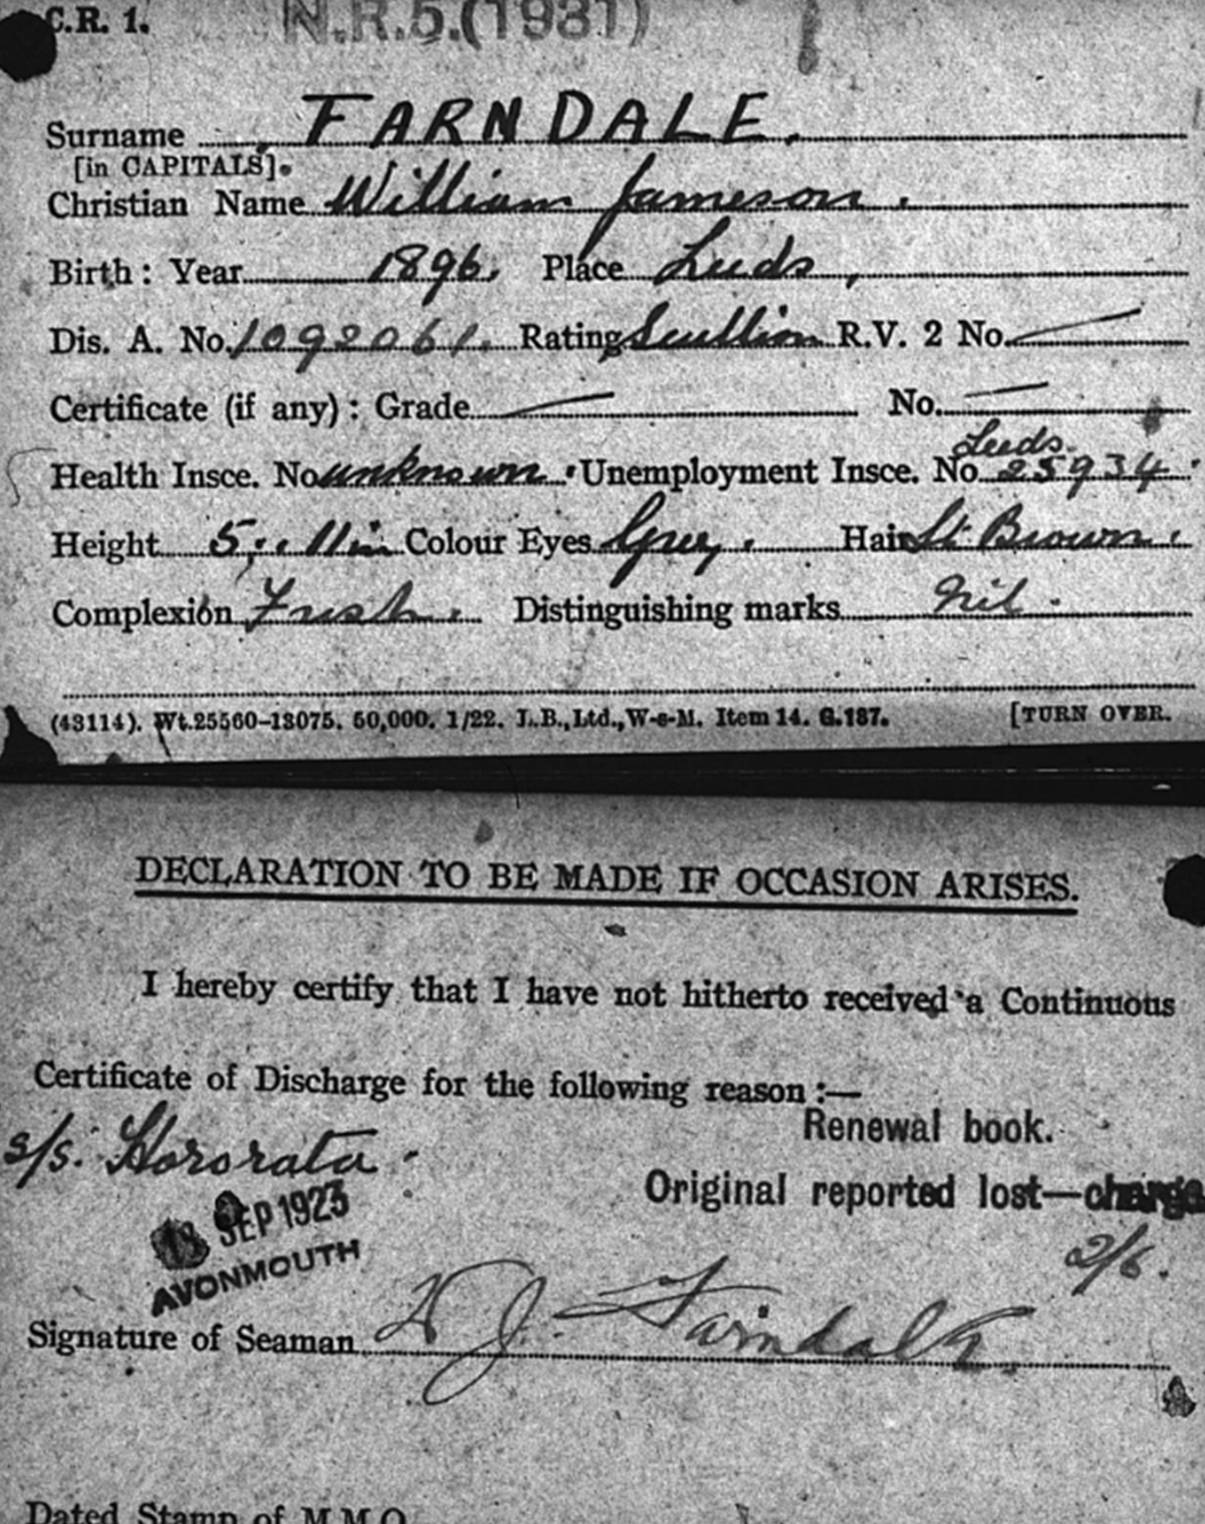 C.R. 1. N.R.5.(1931)
Surname FARNDALE.
[in CAPITALS].
Christian Name William Jameson.
Birth: Year 1896. Place Leeds,
Dis. A. No. 1092061. Rating Scullion R.V. 2 No. —
Certificate (if any): Grade — No. —
Leeds.
Health Insce. No unknown. Unemployment Insce. No 25934.
Height 5,, 11in Colour Eyes Grey. Hair Lt. Brown.
Complexion Fresh. Distinguishing marks Nil.
(43114). Wt.25560-13075. 50,000. 1/22. J.B.,Ltd.,W-s-M. Item 14. G.187. [TURN OVER.
DECLARATION TO BE MADE IF OCCASION ARISES.
I hereby certify that I have not hitherto received a Continuous
Certificate of Discharge for the following reason:—
Renewal book.
s/s. Hororata.
Original reported lost—charge
SEP 1923
2/6.
AVONMOUTH
Signature of Seaman W J. Farndale
Dated Stamp of M.M.O.